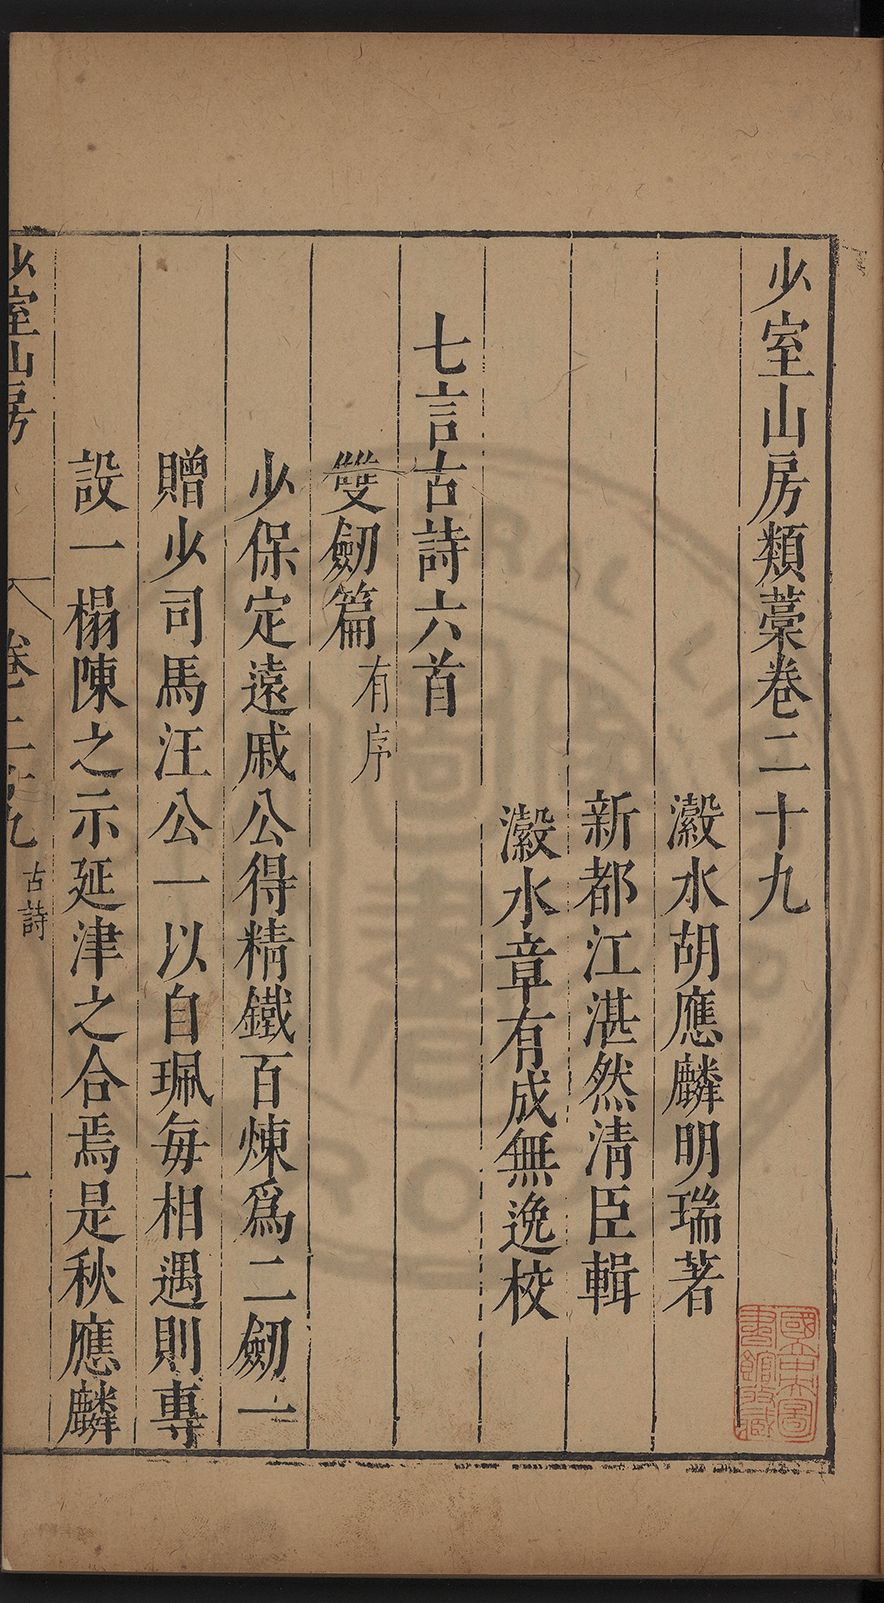 少室山房類藁卷二十九
瀫水胡應麟明瑞著
新都江湛然清臣輯
瀫水章有成無逸校
七言古詩六首
雙劒篇有序
少保定遠戚公得精鐵百煉爲二劒一
贈少司馬汪公一以自珮每相遇則專
設一榻陳之示延津之合焉是秋應麟
少室山房 卷二十九 古詩 一
國立中央圖書館收藏